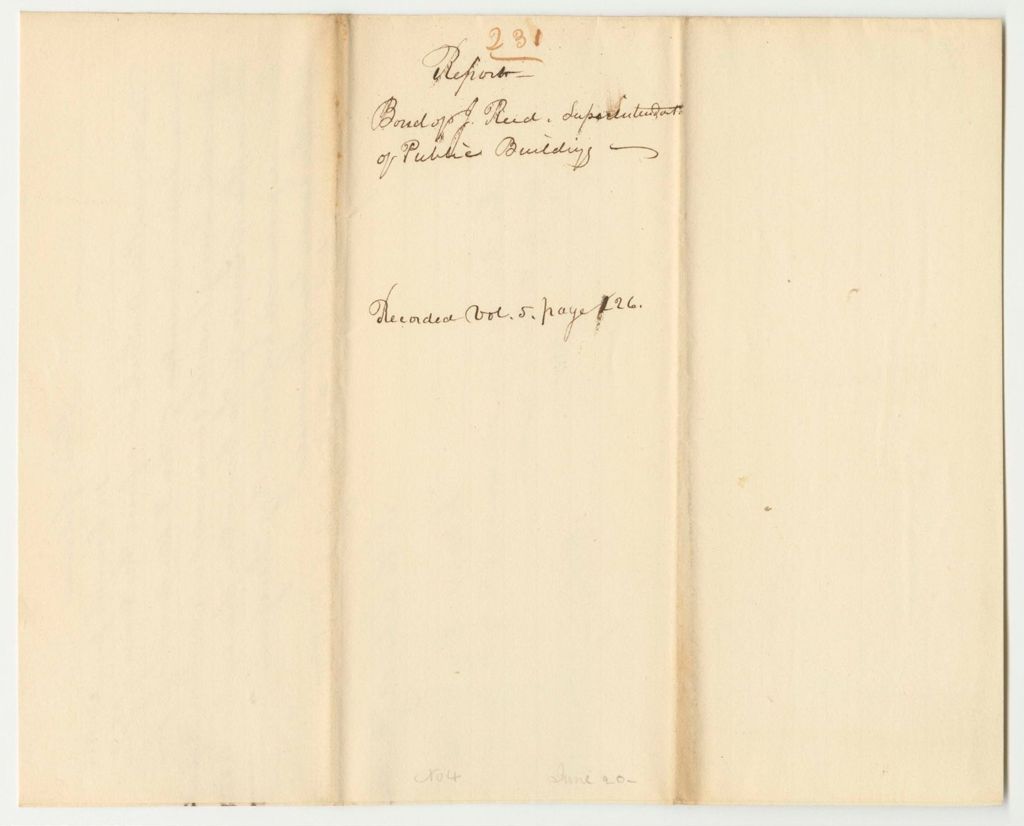 231
Report
Bond of J. Reed. Superintendant
of Public Buildings
Recorded Vol. 5. page 126.
No 4
June 20